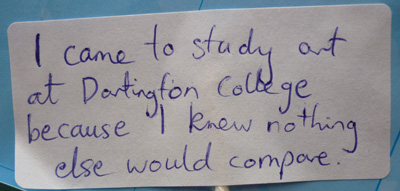 I came to study art
at Dartington College
because I knew nothing
else would compare.